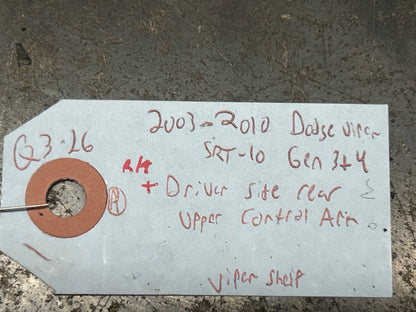 2003-2010 Dodge Viper
Q3-26
SRT-10 Gen 3+4
R/H
+ Driver side rear
A
Upper Control Arm
Viper Shelf